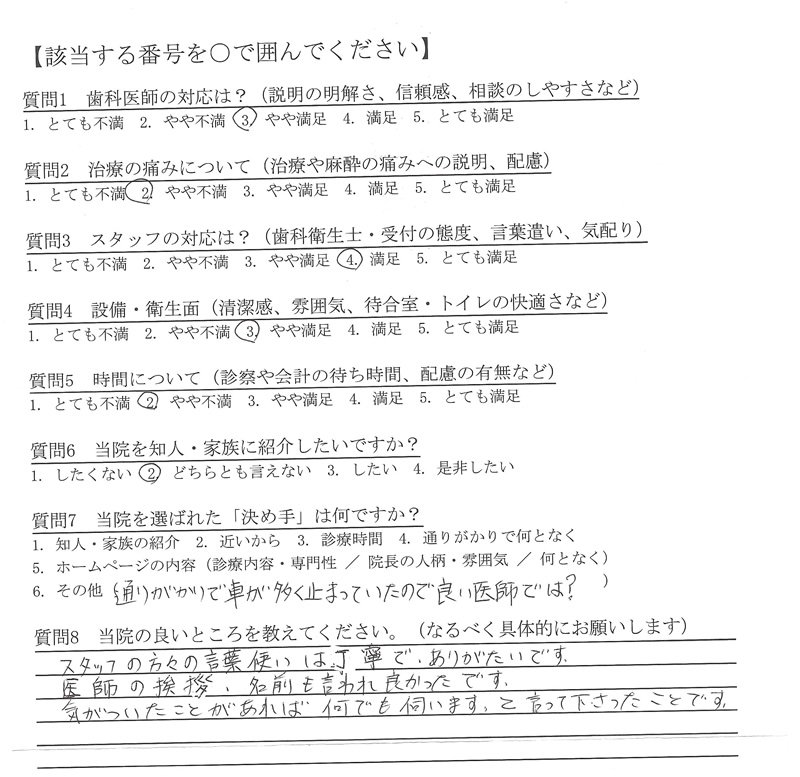 【該当する番号を○で囲んでください】
質問1 歯科医師の対応は？（説明の明解さ、信頼感、相談のしやすさなど）
1. とても不満 2. やや不満 3. やや満足 4. 満足 5. とても満足
質問2 治療の痛みについて（治療や麻酔の痛みへの説明、配慮）
1. とても不満 2. やや不満 3. やや満足 4. 満足 5. とても満足
質問3 スタッフの対応は？（歯科衛生士・受付の態度、言葉遣い、気配り）
1. とても不満 2. やや不満 3. やや満足 4. 満足 5. とても満足
質問4 設備・衛生面（清潔感、雰囲気、待合室・トイレの快適さなど）
1. とても不満 2. やや不満 3. やや満足 4. 満足 5. とても満足
質問5 時間について（診察や会計の待ち時間、配慮の有無など）
1. とても不満 2. やや不満 3. やや満足 4. 満足 5. とても満足
質問6 当院を知人・家族に紹介したいですか？
1. したくない 2. どちらとも言えない 3. したい 4. 是非したい
質問7 当院を選ばれた「決め手」は何ですか？
1. 知人・家族の紹介 2. 近いから 3. 診療時間 4. 通りがかりで何となく
5. ホームページの内容（診療内容・専門性 ／ 院長の人柄・雰囲気 ／ 何となく）
6. その他（通りがかりで車が多く止まっていたので良い医師では？）
質問8 当院の良いところを教えてください。（なるべく具体的にお願いします）
スタッフの方々の言葉使いは丁寧で、ありがたいです。
医師の挨拶、名前も言われ良かったです。
気がついたことがあれば何でも伺います。と言って下さったことです。